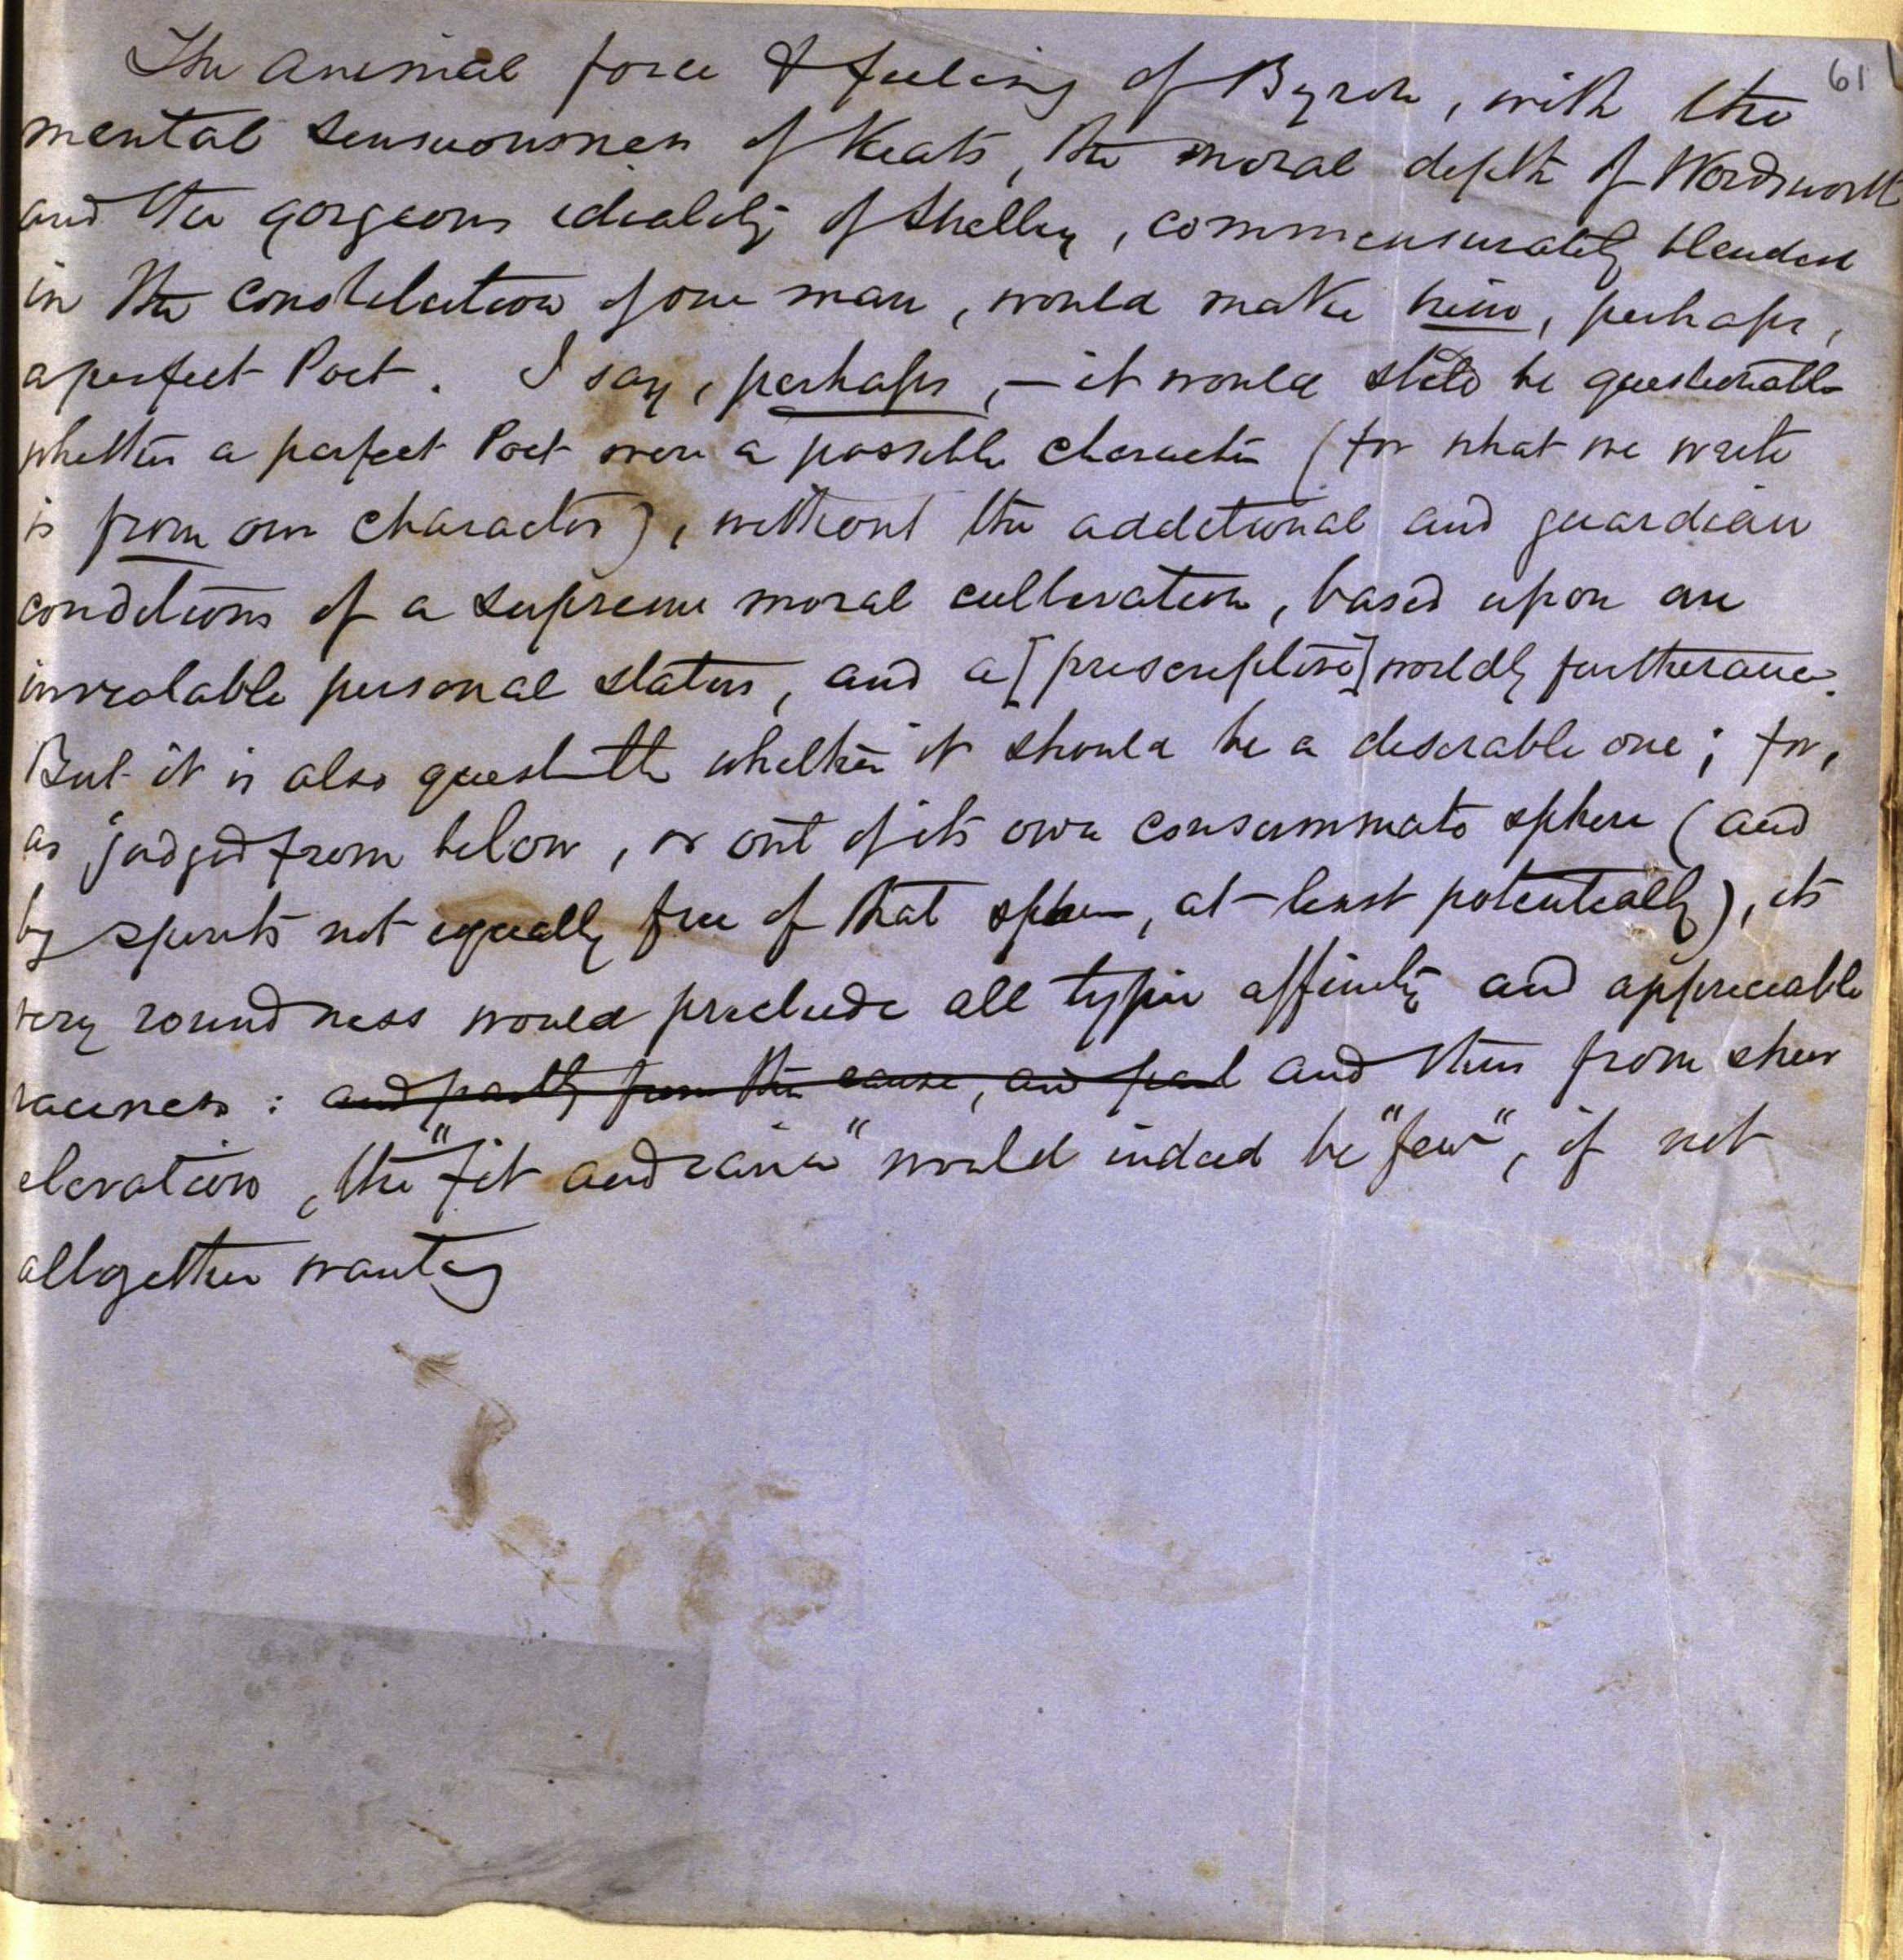 61
The animal force & feeling of Byron, with the
mental sensuousness of Keats, the moral depth of Wordsworth
and the gorgeous ideality of Shelley, commensurately blended
in the constitution of one man, would make him, perhaps,
a perfect Poet. I say, perhaps,—it would still be questionable
whether a perfect Poet were a possible character (for what we write
is from our character), without the additional and guardian
conditions of a supreme moral cultivation, based upon an
inviolable personal status, and a [prescriptive] worldly furtherance.
But it is also questionable whether it should be a desirable one; for,
as judged from below, or out of its own consummate sphere (and
by spirits not equally free of that sphere, at-least potentially), its
very roundness would preclude all typic affinity and appreciable
raciness: and partly from the cause, and part and thus from sheer
elevation, the "fit audience" would indeed be "few", if not
altogether wanting